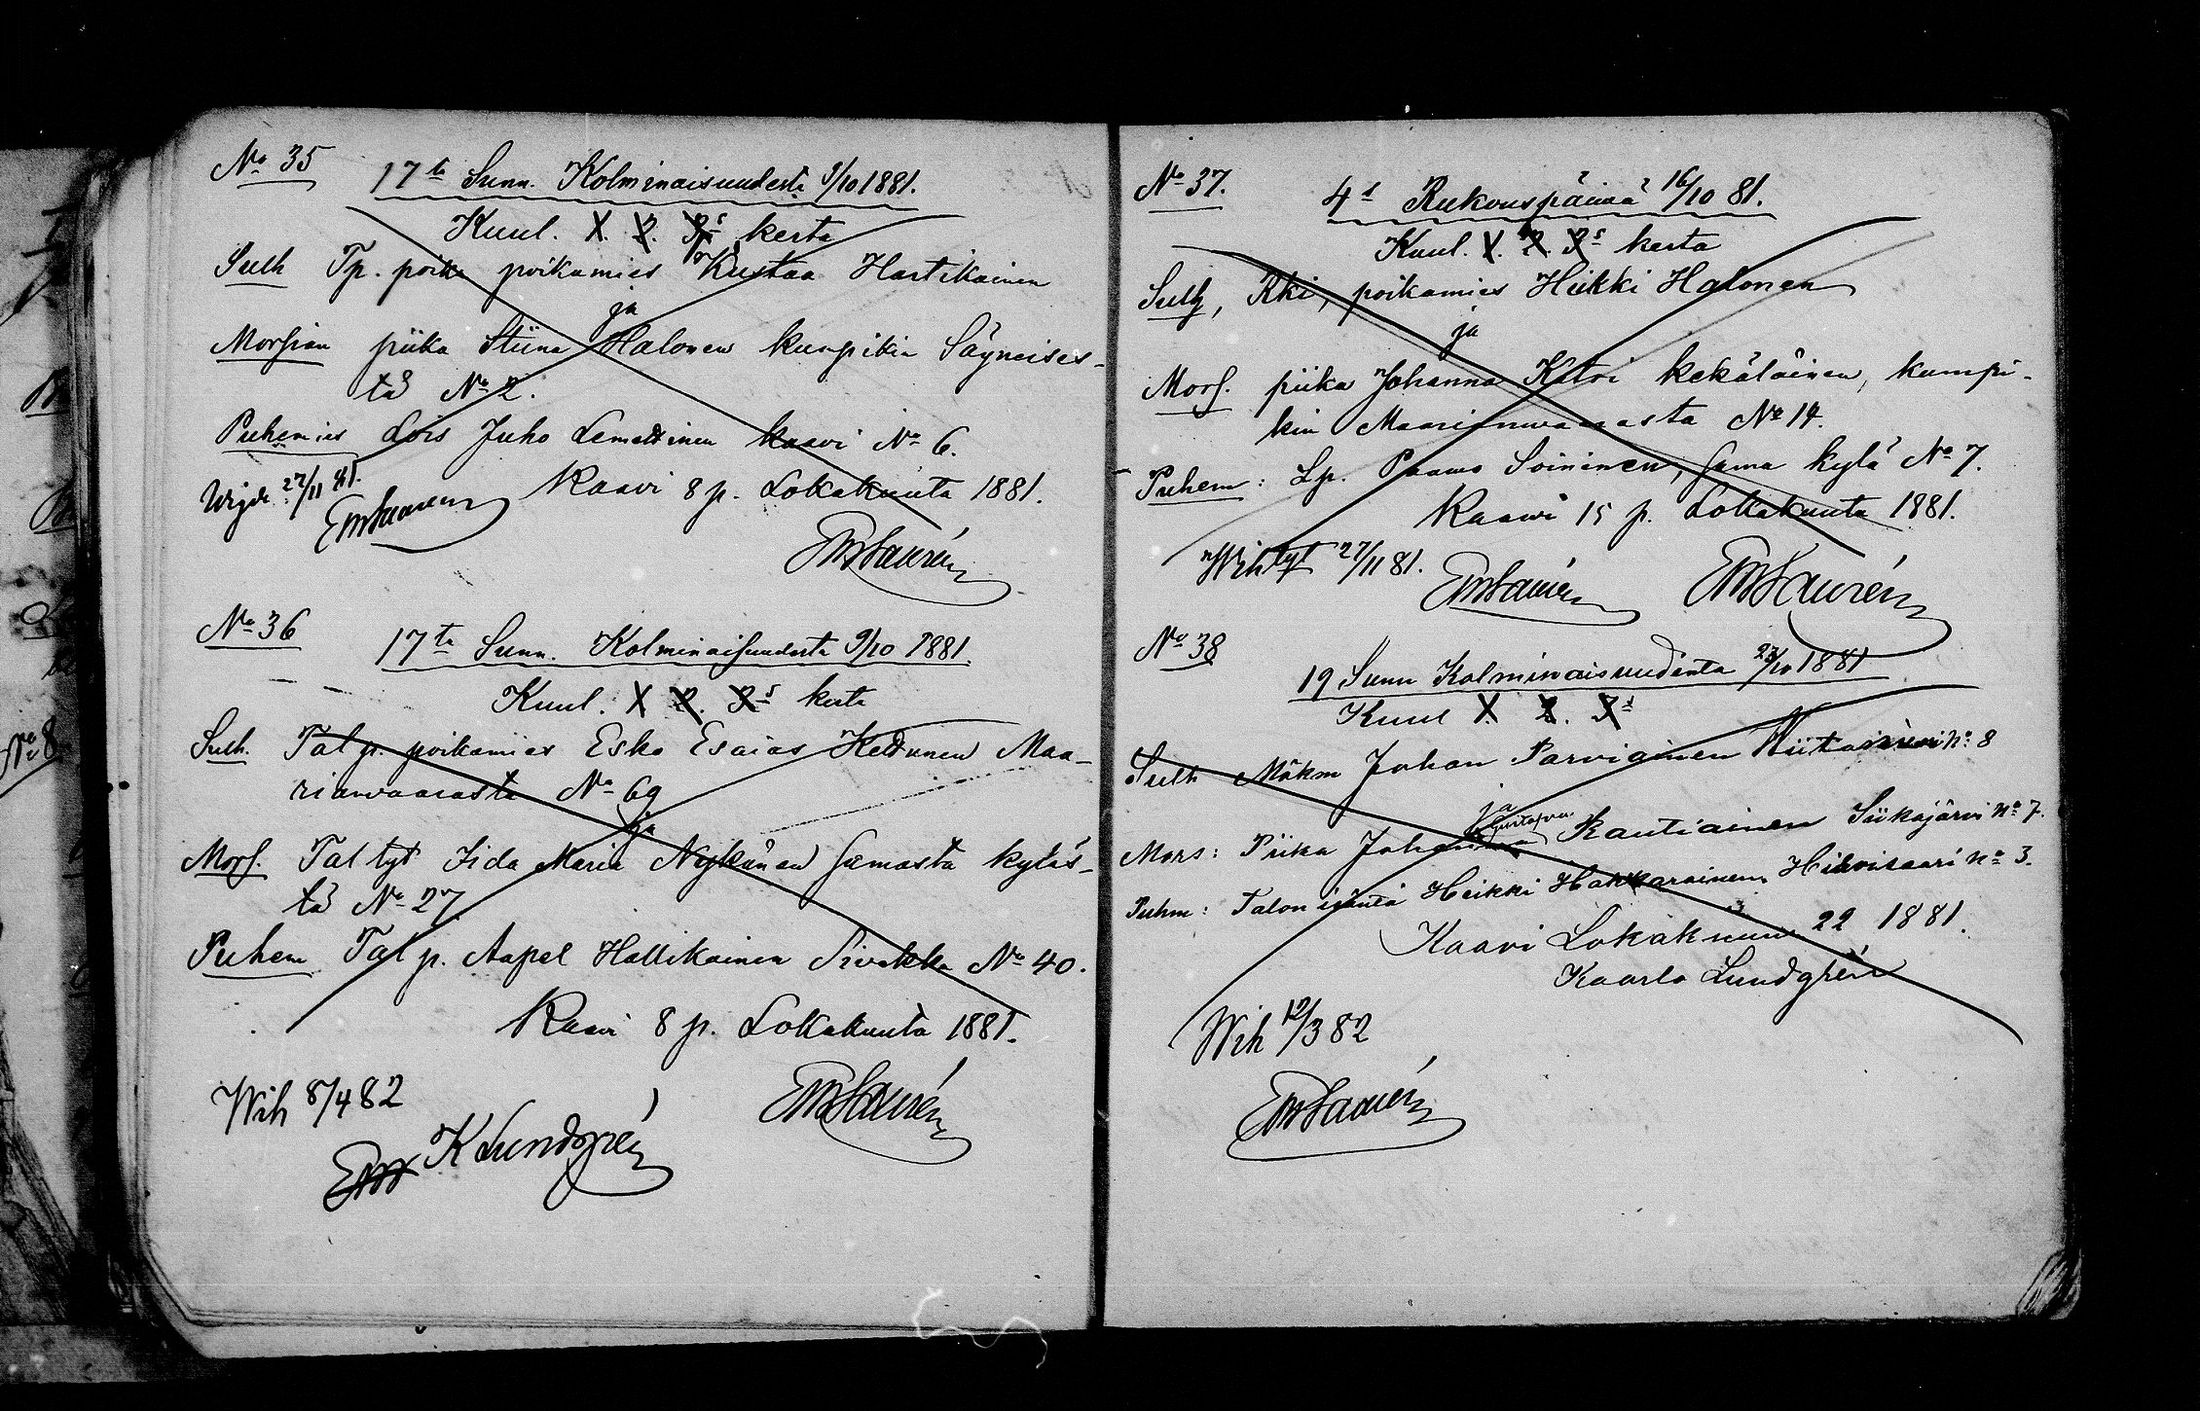 No 35
17ta Sunn. Kolminaisuudesta 9/10 1881.
Kuul. 1. 2. 3s kerta
Sulh Tp. poika poikamies Kustaa Hartikainen
ja
Morsian piika Stiina Halonen kumpikin Säyneises-
tä No 2.
Puhemies Lois Juho Lemettinen Kaavi No 6.
Kaavi 8 p. Lokakuuta 1881.
27/11 81.
EWLaurén
EWLaurén
No 36
17ta Sunn. Kolminaisuudesta 9/10 1881
Kuul. 1 2. 3s kerta
Sulh. Tal p. poikamies Esko Esaias Kettunen Maa-
rianvaarasta No 69
ja
Mors. Tal tyt Iida Maria Nykänen samasta kyläs-
tä No 27
Puhem Tal p. Aapel Hallikainen Sivakka No 40.
Kaavi 8 p. Lokakuuta 1881.
Wih 8/4 82
EWLaurén
EW K Lundgrén
No 37.
4s Rukouspäivä 16/10 81.
Kuul. 1. 2. 3s kerta
Sulh, Rki, poikamies Heikki Halonen
ja
Mors. piika Johanna Katri Kekäläinen, kumpi-
kin Maarianwaarasta No 14.
Puhem: Lp. Paawo Soininen, sama kylä No 7.
Kaawi 15 p. Lokakuuta 1881.
Wihtyt 27/11 81.
EWLaurén
EWLaurén
No 38
19 Sunn Kolminaisuudesta 23/10 1881
Kuul 1. 2. 3s
Sulh Mökm Johan Parviainen No 8
ja
Mors: Piika Rautiainen Siikajärvi No 7.
Puhm: Talon isäntä Heikki Hakkarainen Hirvisaari No 3.
Kaavi Lokakuun 22 1881.
Kaarlo Lundgrén
Wih 12/3 82
EWLaurén